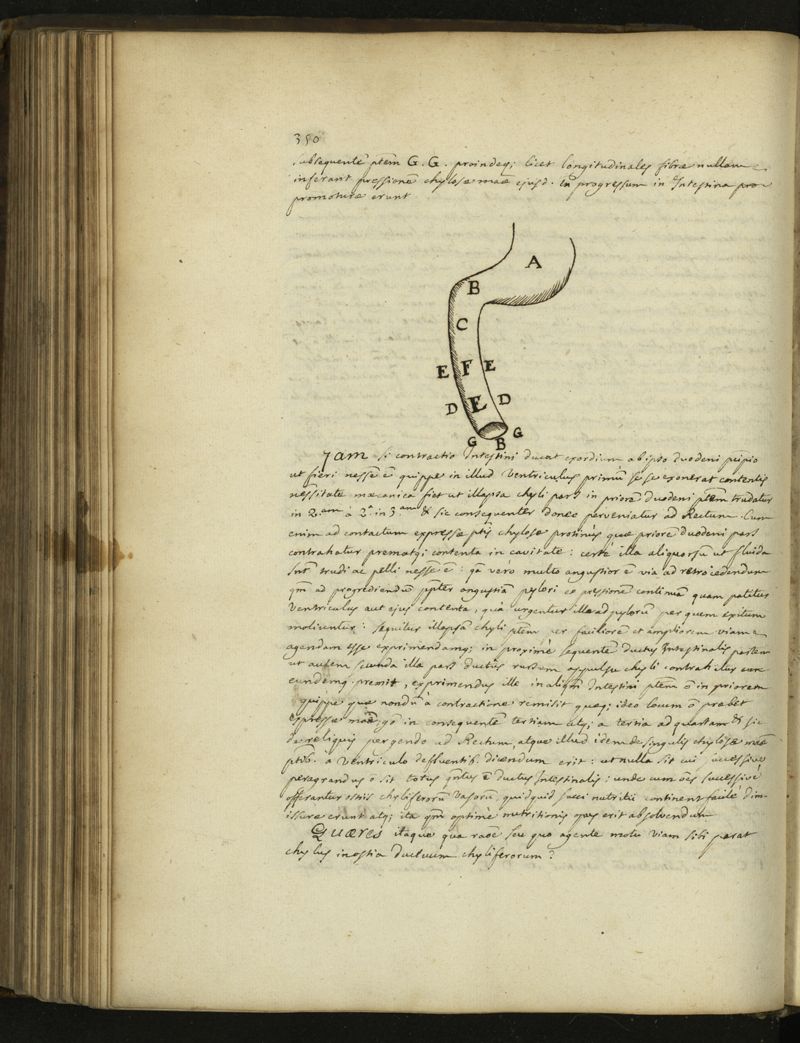 350
subsequentē ptēm G. G. proindeq; licet longitudinales fibræ nullam
inferant pressionē chylosæ maæ ejusd. tn̄ progressum in Intestina pro
promoturæ erunt
A
B
C
E F E
D E D
G B G
Jam si contractio Intestini ducat exordium ab ipso duodeni pṅipio
ut fieri nesse ē quippe in illud Ventriculus primū sese exonerat contentis
nessitate mæcanica fiet ut illapsa chyli pars in priorē duodeni ptēm trudatur
in 2.am à 2.a in 3.am & sic consequenter donec perveniatur ad Rectum. Cum
enim ad contactum expressæ ptis chylosæ protinùs quæ priorē duodeni pars
contrahatur prematq; contenta in cavitate: certè illa aliquorsū ut fluida
sn̄t trudi ac pelli nesse ē: qa vero multo angustior ē via ad retrocedendum
qm̄ ad progrediendū ppter angustiā pylori et pressionē continuā quam patitur
Ventriculus aut ejus contenta, quæ urgentur illa ad pylorū per quem exitum
moliuntur: sequitur illapsā chyli ptēm per faciliorē et ampliorem viam
agendam esse exprimendamq; in proximè sequentē ductus Intestinalis partem
ut autem secunda illa pars ductus rursum appulsu chyli contrahitur eum
eundemq. premit, exprimendus ille in aliqm̄ Intestini ptēm ō in priorem
quippe quæ nondū à contractione remisit quæq; ideo locum ō præbet
expressæ maæ, gō in consequentē tertiam atq; a tertia ad quartam & sic
de reliquis pergendo ad Rectum, atque illud idem de singulis chylosæ maæ
ptib. a Ventriculo deffluentib. dicendum erit: ut nulla sit cui successivè
peragrandus ō sit totus qn̄tus ē ductus Intestinalis: unde cum oēs successivè
offerantur ostiis chyliferorū Vasorū, quidquid succi nutritii continent facilè dim-
issuræ erunt atq; ita qm̄ optimè nutritionis opus erit absolvendum
Quæres itaque qua raōe seu quo agente motu viam sibi parat
chylus in ostia Ductuum chyliferorum?